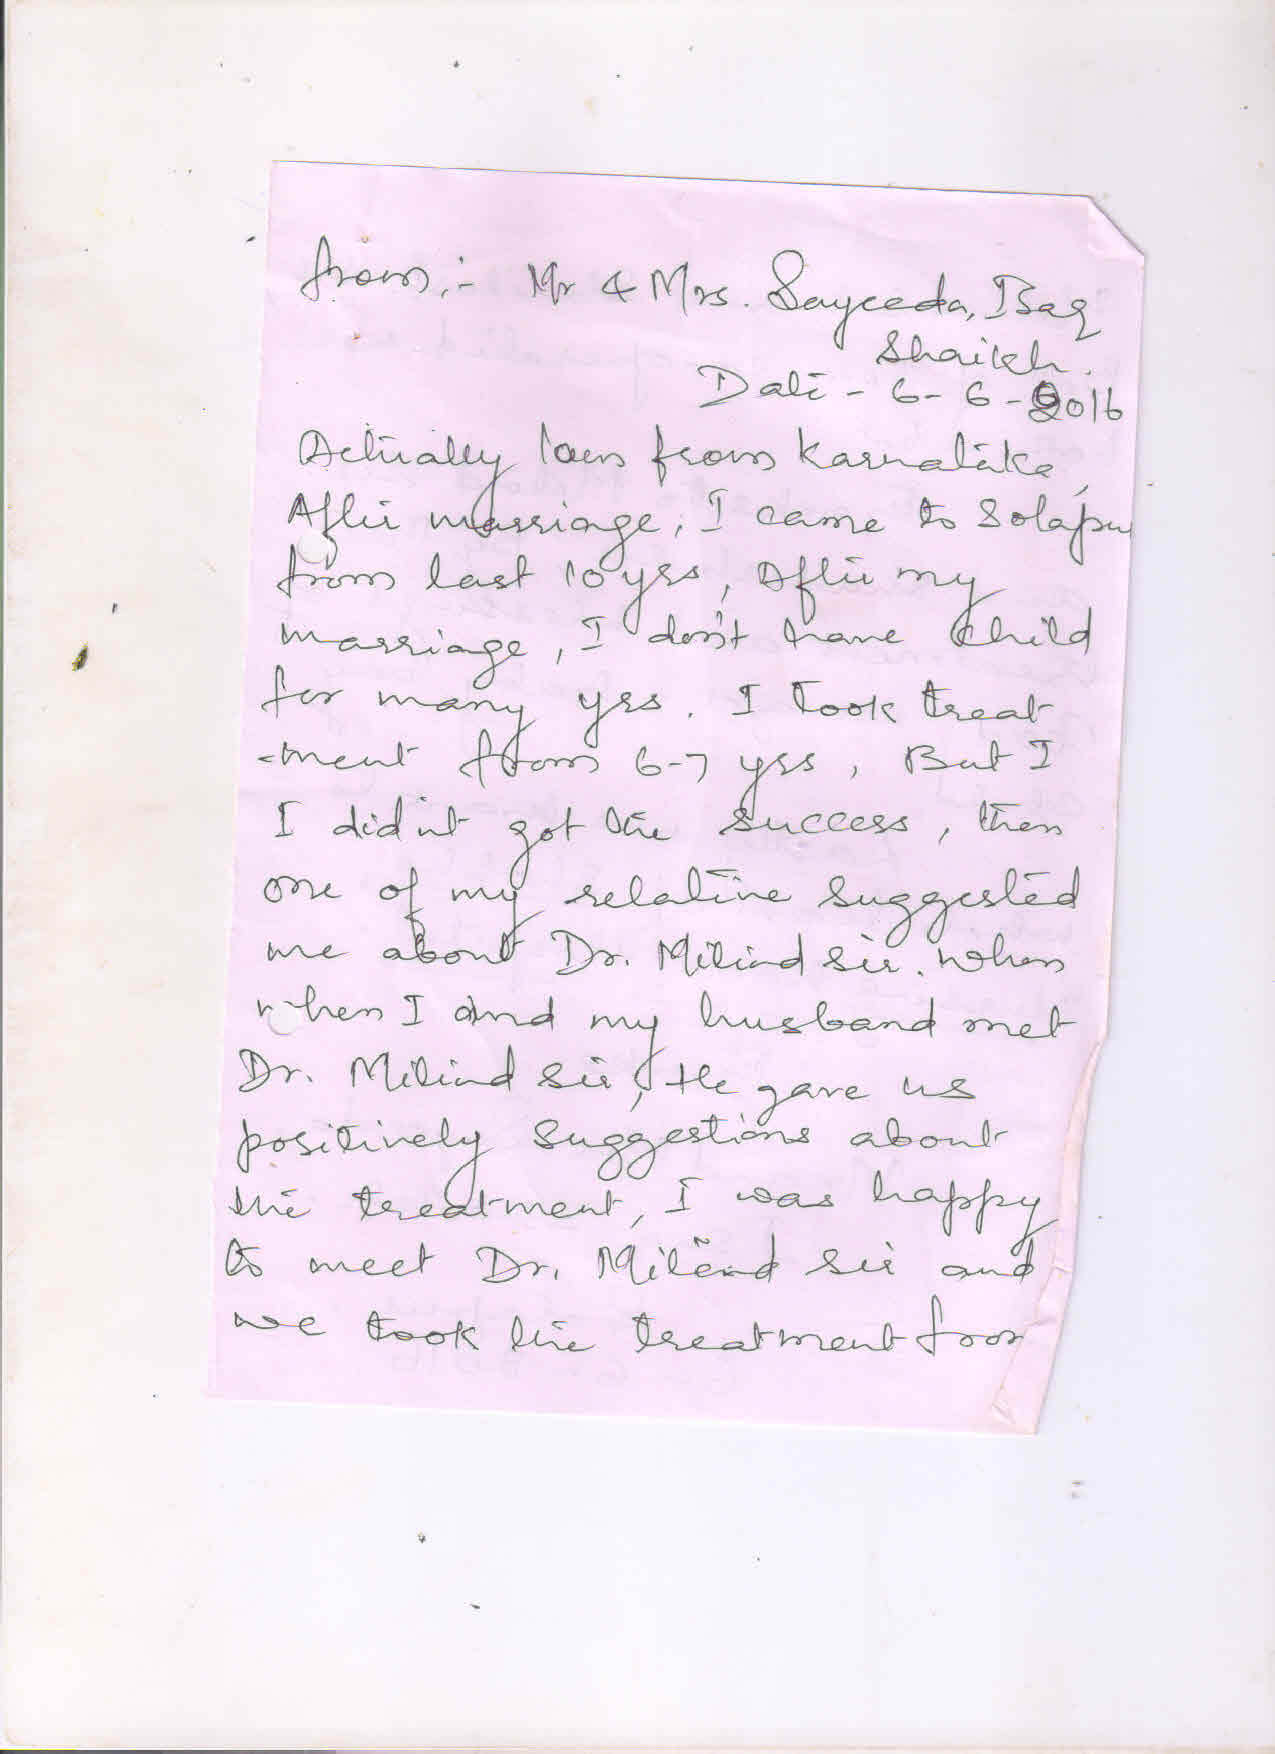 from :- Mr & Mrs. Sayeeda, Baq
Shaikh.
Date - 6 - 6 - 2016
Actually I am from Karnataka,
After marriage, I came to Solapur
from last 10 yrs, After my
marriage, I don't have child
for many yrs. I took treat
-ment from 6-7 yrs, But I
I didn't got the success, then
one of my relative suggested
me about Dr. Milind sir. When
when I and my husband met
Dr. Milind sir, He gave us
positively suggestions about
the treatment, I was happy
to meet Dr. Milind sir and
we took the treatment from